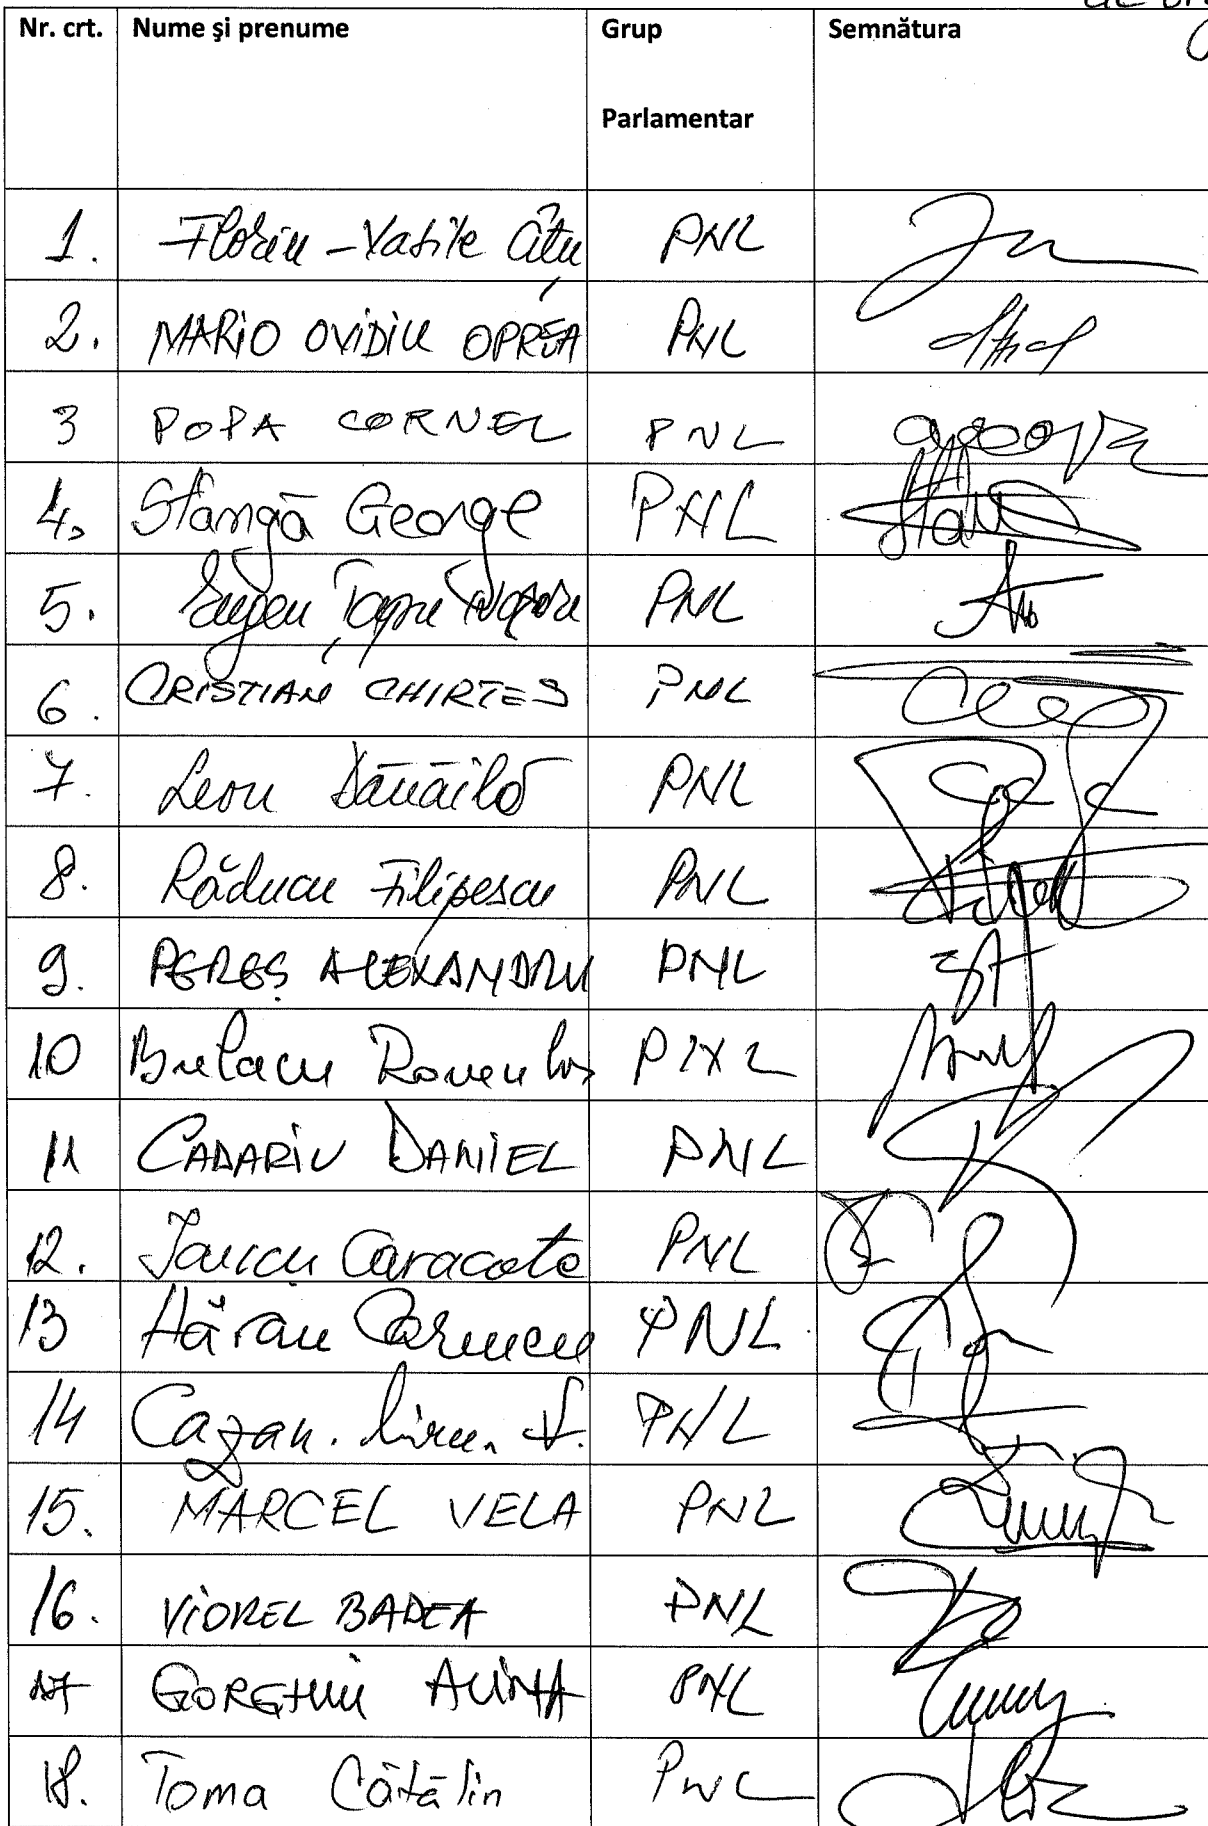 Nr. crt. Nume şi prenume Grup Parlamentar Semnătura
1. Florin-Vasile Cîțu PNL
2. MARIO OVIDIU OPREA PNL
3 POPA CORNEL PNL
4. Stângă George PNL
5. Eugen Țapu PNL
6. CRISTIAN CHIRTEȘ PNL
7. Leon Dănăilă PNL
8. Răducu Filipescu PNL
9. PEREȘ ALEXANDRU PNL
10 Bulacu Romulus PNL
11 CADARIU DANIEL PNL
12. Iancu Caracota PNL
13 Hărău Carmen PNL
14 Cazan. PNL
15. MARCEL VELA PNL
16. VIOREL BADEA PNL
17 GORGHIU ALINA PNL
18. Toma Cătălin PNL